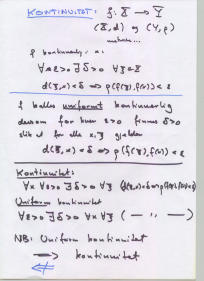 KONTINUITET: f: X → Y
(X,d) og (Y,ρ)
f kontinuerlig i x:
∀ε>0 ∃δ>0 ∀ξ∈X
d(ξ,x)<δ ⇒ ρ(f(ξ),f(x))<ε
f kalles uniformt kontinuerlig
dersom for hver ε>0 finnes δ>0
slik at for alle x,ξ gjelder
d(ξ,x)<δ ⇒ ρ(f(ξ),f(x))<ε
Kontinuitet:
∀x ∀ε>0 ∃δ>0 ∀ξ (d(ξ,x)<δ⇒ρ(f(ξ),f(x))<ε)
Uniform kontinuitet
∀ε>0 ∃δ>0 ∀x ∀ξ ( — " — )
NB: Uniform kontinuitet
⇒ kontinuitet